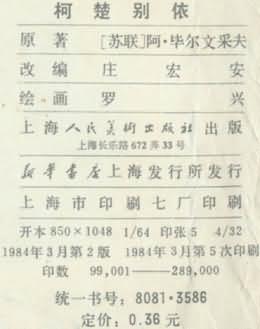 柯楚别依
原著 [苏联]阿·毕尔文采夫
改编 庄宏安
绘画 罗兴
上海人民美術出版社出版
上海长乐路672弄33号
新華書店上海发行所发行
上海市印刷七厂印刷
开本 850×1048 1/64 印张 5 4/32
1984年3月第2版 1984年3月第5次印刷
印数 99,001——289,000
统一书号：8081·3586
定价：0.36元